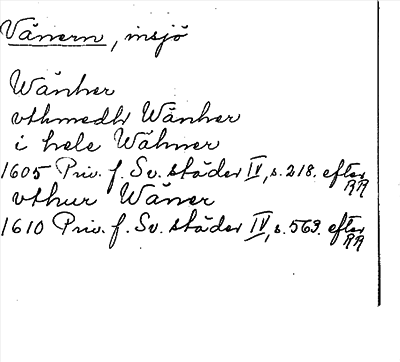 Vänern, insjö
Wänher
vthmedh Wänher
i hele Wähner
1605 Priv. f. Sv. städer IV, s. 218. efter RA
vthur Wäner
1610 Priv. f. Sv. städer IV, s. 563. efter RA